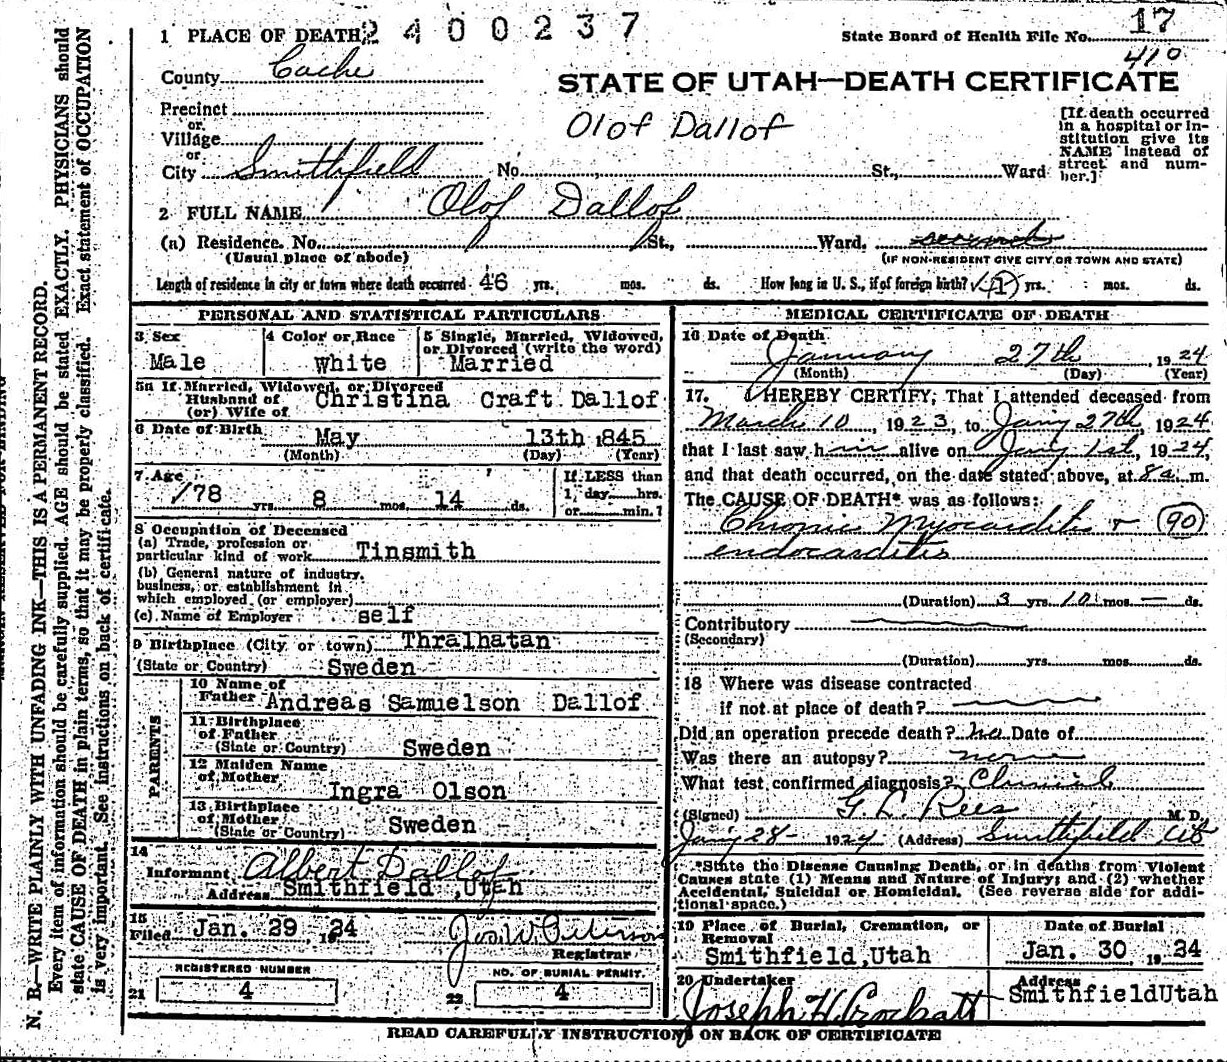 2400237
State Board of Health File No. 17
410
1 PLACE OF DEATH
County Cache
STATE OF UTAH—DEATH CERTIFICATE
Precinct
or
Village
or
City Smithfield No. St., Ward
Olof Dallof
[If death occurred
in a hospital or in-
stitution give its
NAME instead of
street and num-
ber.]
2 FULL NAME Olof Dallof
(a) Residence. No. St., Ward.
(Usual place of abode)
(IF NON-RESIDENT GIVE CITY OR TOWN AND STATE)
Length of residence in city or town where death occurred 46 yrs. mos. ds. How long in U. S., if of foreign birth? yrs. mos. ds.
PERSONAL AND STATISTICAL PARTICULARS
3 Sex
Male
4 Color or Race
White
5 Single, Married, Widowed,
or Divorced (write the word)
Married
5a If Married, Widowed, or Divorced
Husband of
(or) Wife of
Christina Craft Dallof
6 Date of Birth May 13th 1845
(Month) (Day) (Year)
7 Age
78 yrs. 8 mos. 14 ds.
If LESS than
1 day hrs.
or min.?
8 Occupation of Deceased
(a) Trade, profession or
particular kind of work Tinsmith
(b) General nature of industry,
business, or establishment in
which employed (or employer)
(c) Name of Employer self
9 Birthplace (City or town) Thralhatan
(State or Country) Sweden
PARENTS
10 Name of
Father Andreas Samuelson Dallof
11 Birthplace
of Father
(State or Country) Sweden
12 Maiden Name
of Mother
Ingra Olson
13 Birthplace
of Mother
(State or Country) Sweden
14
Informant Albert Dallof
Address Smithfield, Utah
15
Filed Jan. 29, 1924 Jos. W. Peterson
Registrar
REGISTERED NUMBER
21 4
NO. OF BURIAL PERMIT.
22 4
MEDICAL CERTIFICATE OF DEATH
16 Date of Death
January 27th 1924
(Month) (Day) (Year)
17. I HEREBY CERTIFY, That I attended deceased from
March 10, 1923, to Jany 27th, 1924
that I last saw him alive on Jany 1st, 1924,
and that death occurred, on the date stated above, at 8 a. m.
The CAUSE OF DEATH* was as follows:
Chronic Myocarditis + 90
endocarditis
(Duration) 3 yrs. 10 mos. — ds.
Contributory
(Secondary)
(Duration) yrs. mos. ds.
18 Where was disease contracted
if not at place of death?
Did an operation precede death? no Date of
Was there an autopsy? none
What test confirmed diagnosis? Clinical
(Signed) G. L. Rees M. D.
Jany 28 1924 (Address) Smithfield Ut
*State the Disease Causing Death, or in deaths from Violent
Causes state (1) Means and Nature of Injury; and (2) whether
Accidental, Suicidal or Homicidal. (See reverse side for addi-
tional space.)
19 Place of Burial, Cremation, or
Removal
Smithfield, Utah
Date of Burial
Jan. 30, 1924
20 Undertaker
Joseph H Crockatt
Address
Smithfield Utah
READ CAREFULLY INSTRUCTIONS ON BACK OF CERTIFICATE
N. B.—WRITE PLAINLY WITH UNFADING INK—THIS IS A PERMANENT RECORD.
Every item of information should be carefully supplied. AGE should be stated EXACTLY. PHYSICIANS should
state CAUSE OF DEATH in plain terms, so that it may be properly classified. Exact statement of OCCUPATION
is very important. See instructions on back of certificate.